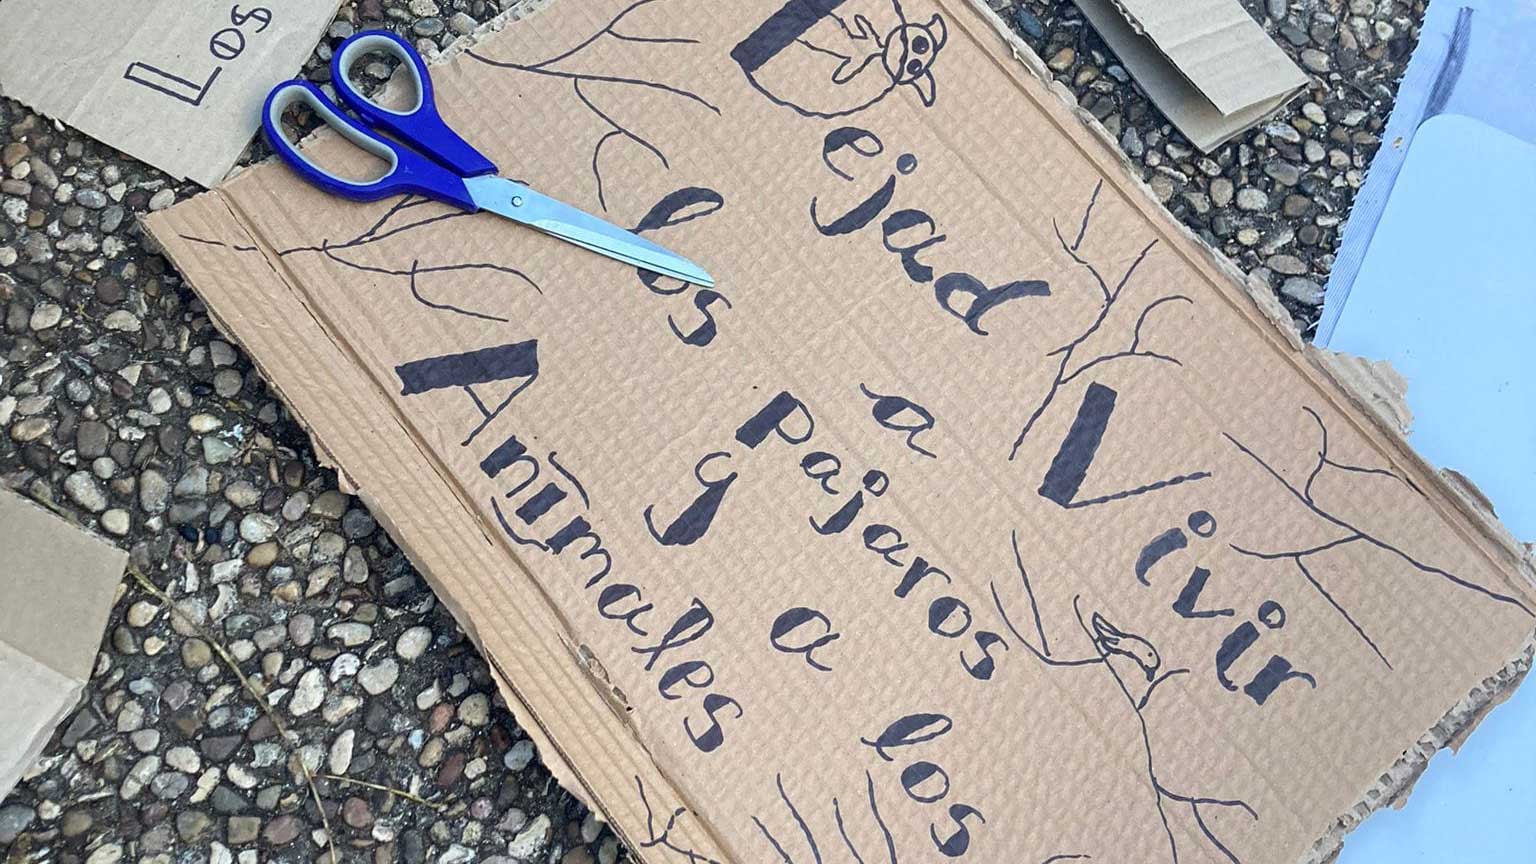 Los
Dejad Vivir
a
los pajaros
y a los
Animales